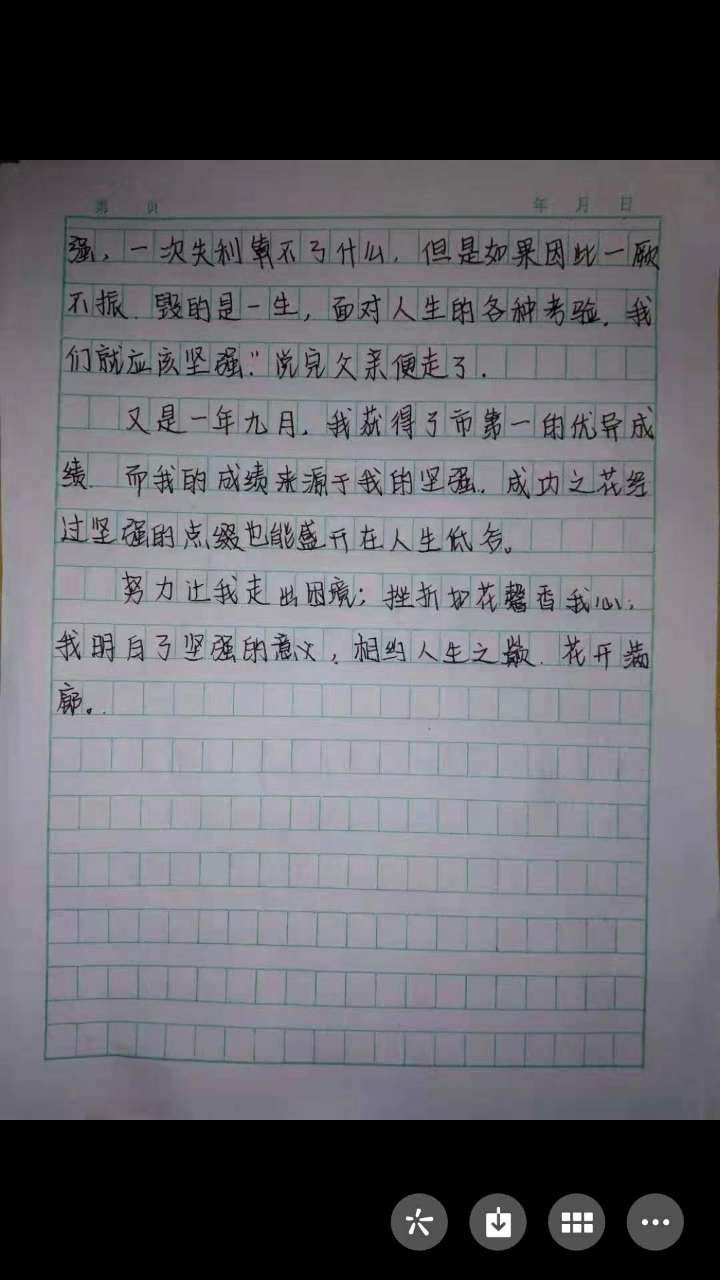 第 页 年 月 日
强，一次失利算不了什么，但是如果因此一厥
不振，毁的是一生，面对人生的各种考验，我
们就应该坚强。"说完父亲便走了．
又是一年九月，我获得了市第一的优异成
绩．而我的成绩来源于我的坚强，成功之花经
过坚强的点缀也能盛开在人生低谷。
努力让我走出困境；挫折如花馨香我心；
我明白了坚强的意义，相约人生之巅．花开满
廊。